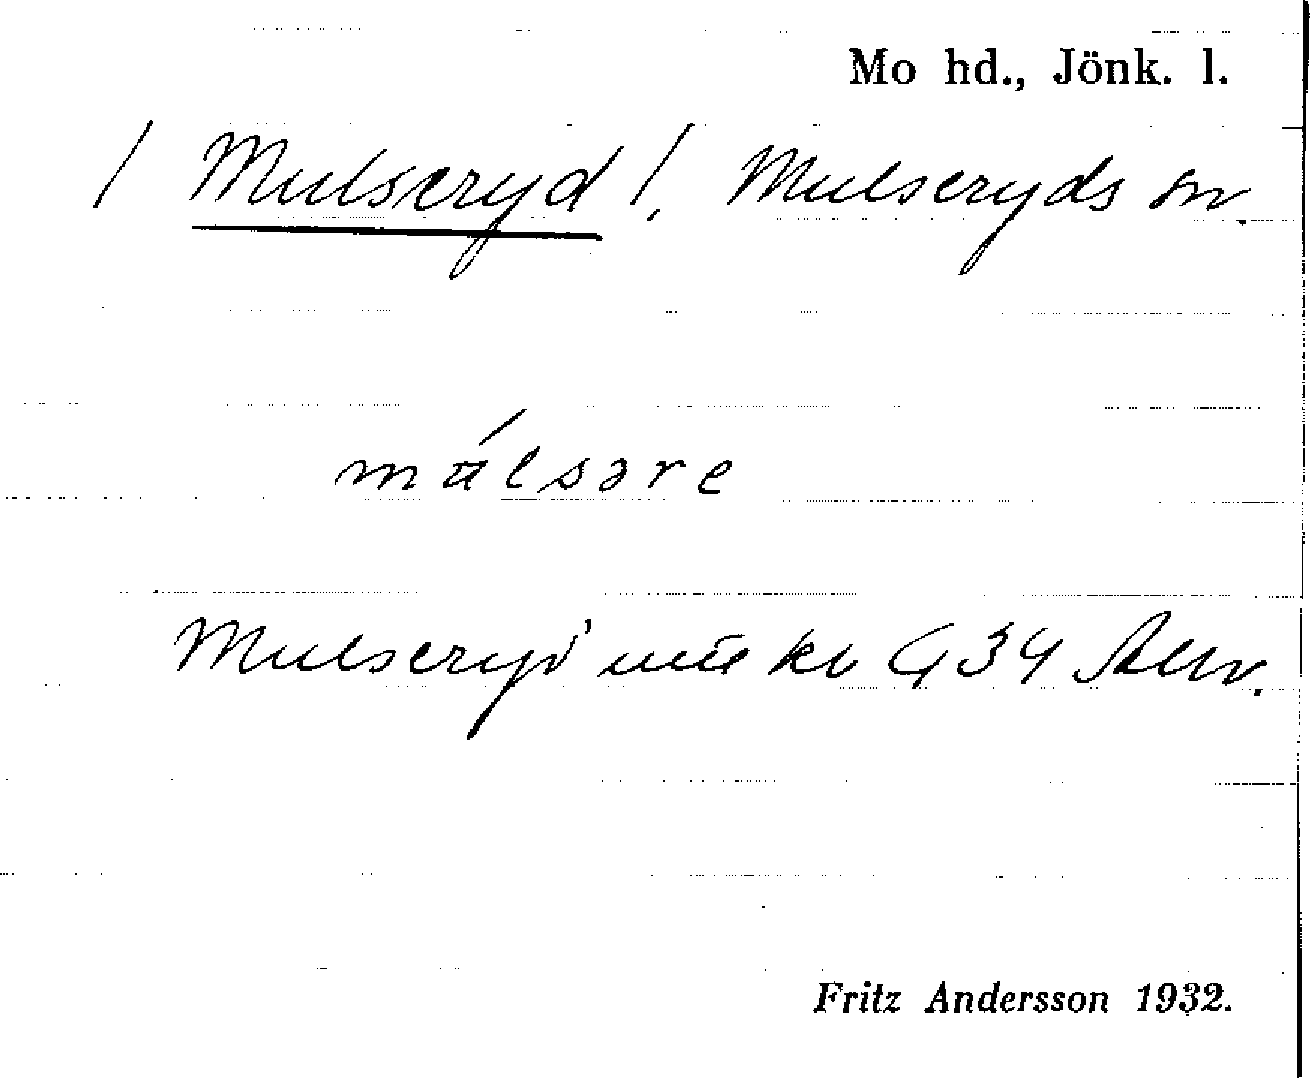 Mo hd., Jönk. l.
/ Mulseryd /. Mulseryds sn.
málsəre
Mulseryd
Fritz Andersson 1932.